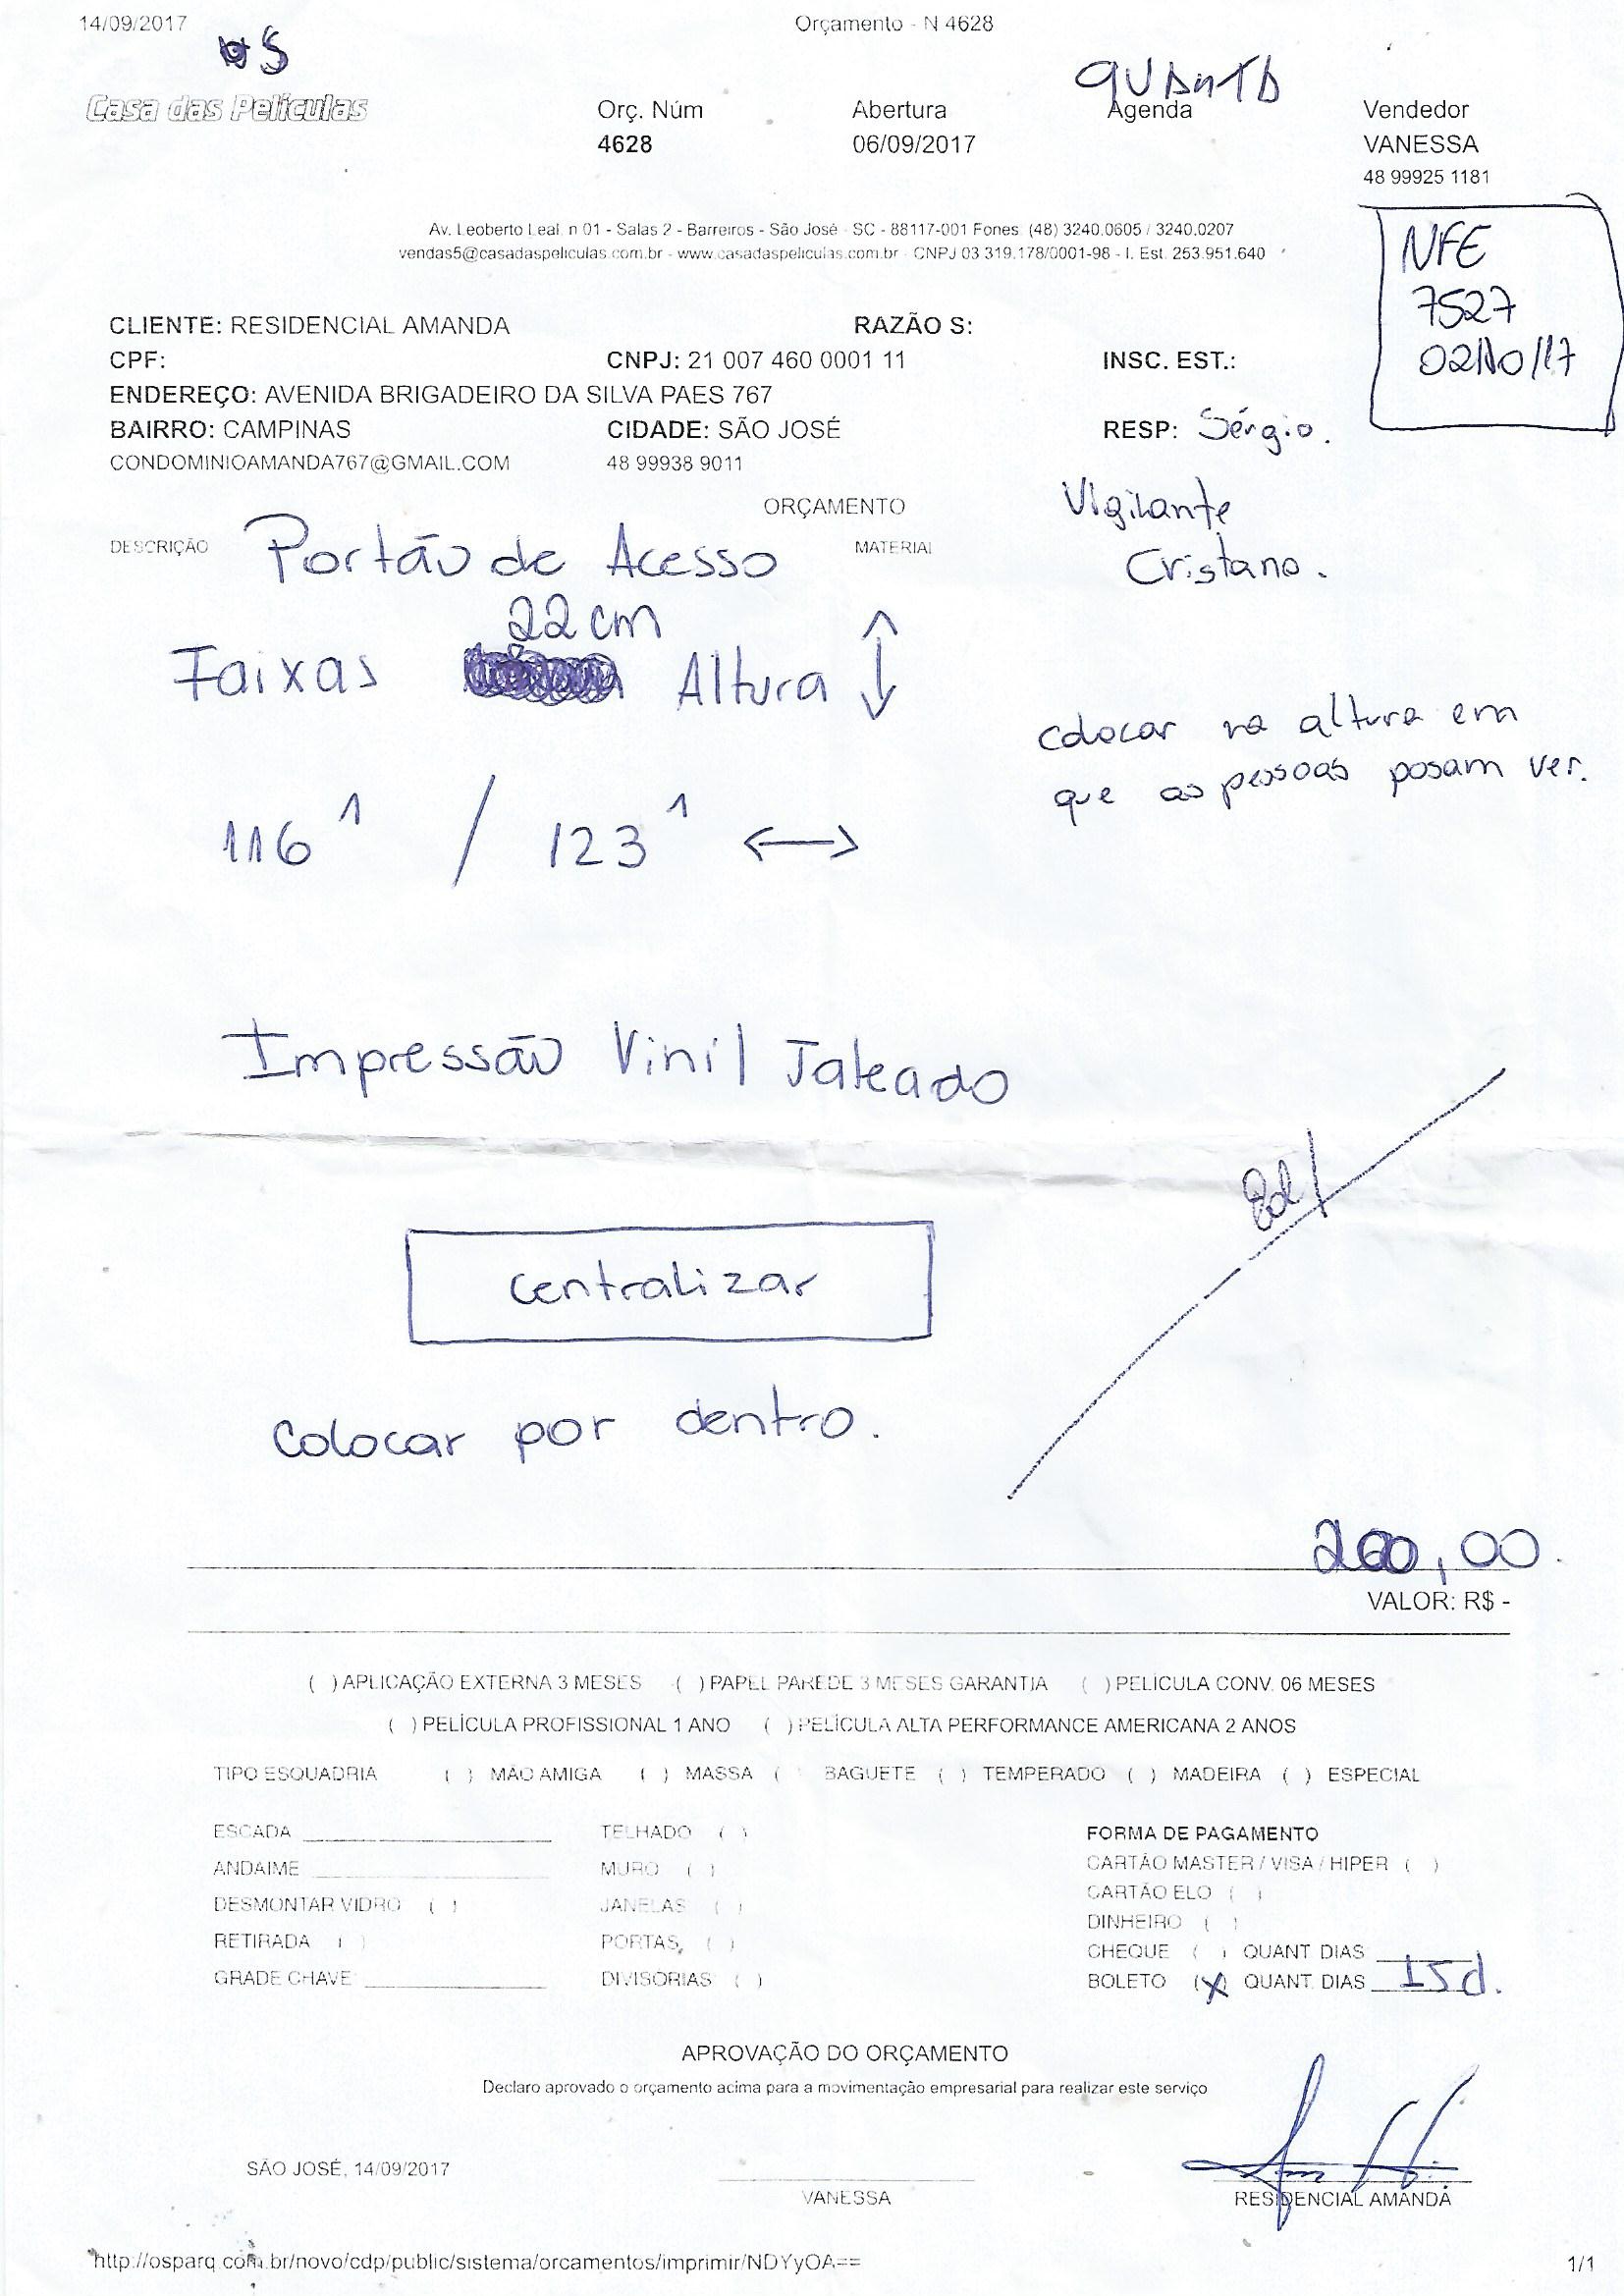 14/09/2017 Orçamento - N 4628
05
QUANTO
Casa das Películas Orç. Núm Abertura Agenda Vendedor
4628 06/09/2017 VANESSA
48 99925 1181
Av. Leoberto Leal, n 01 - Salas 2 - Barreiros - São José - SC - 88117-001 Fones: (48) 3240.0605 / 3240.0207
vendas5@casadaspeliculas.com.br - www.casadaspeliculas.com.br - CNPJ 03 319.178/0001-98 - I. Est. 253.951.640
NFE
7527
02/10/17
CLIENTE: RESIDENCIAL AMANDA RAZÃO S:
CPF: CNPJ: 21 007 460 0001 11 INSC. EST.:
ENDEREÇO: AVENIDA BRIGADEIRO DA SILVA PAES 767
BAIRRO: CAMPINAS CIDADE: SÃO JOSÉ RESP: Sérgio.
CONDOMINIOAMANDA767@GMAIL.COM 48 99938 9011
ORÇAMENTO
Vigilante
DESCRIÇÃO Portão de Acesso MATERIAL Cristano.
22 cm
Faixas Altura ↕
colocar na altura em
que as pessoas posam ver.
116¹ / 123¹ ↔
Impressão Vinil Jateado
centralizar
colocar por dentro.
,00.
VALOR: R$ -
( ) APLICAÇÃO EXTERNA 3 MESES ( ) PAPEL PAREDE 3 MESES GARANTIA ( ) PELÍCULA CONV. 06 MESES
( ) PELÍCULA PROFISSIONAL 1 ANO ( ) PELÍCULA ALTA PERFORMANCE AMERICANA 2 ANOS
TIPO ESQUADRIA ( ) MÃO AMIGA ( ) MASSA ( ) BAGUETE ( ) TEMPERADO ( ) MADEIRA ( ) ESPECIAL
ESCADA TELHADO ( ) FORMA DE PAGAMENTO
ANDAIME MURO ( ) CARTÃO MASTER / VISA / HIPER ( )
DESMONTAR VIDRO ( ) JANELAS ( ) CARTÃO ELO ( )
RETIRADA ( ) PORTAS, ( ) DINHEIRO ( )
CHEQUE ( ) QUANT DIAS
GRADE CHAVE DIVISORIAS ( ) BOLETO (X) QUANT. DIAS 15d.
APROVAÇÃO DO ORÇAMENTO
Declaro aprovado o orçamento acima para a movimentação empresarial para realizar este serviço
SÃO JOSÉ, 14/09/2017
VANESSA RESIDENCIAL AMANDA
http://osparq.com.br/novo/cdp/public/sistema/orcamentos/imprimir/NDYyOA== 1/1